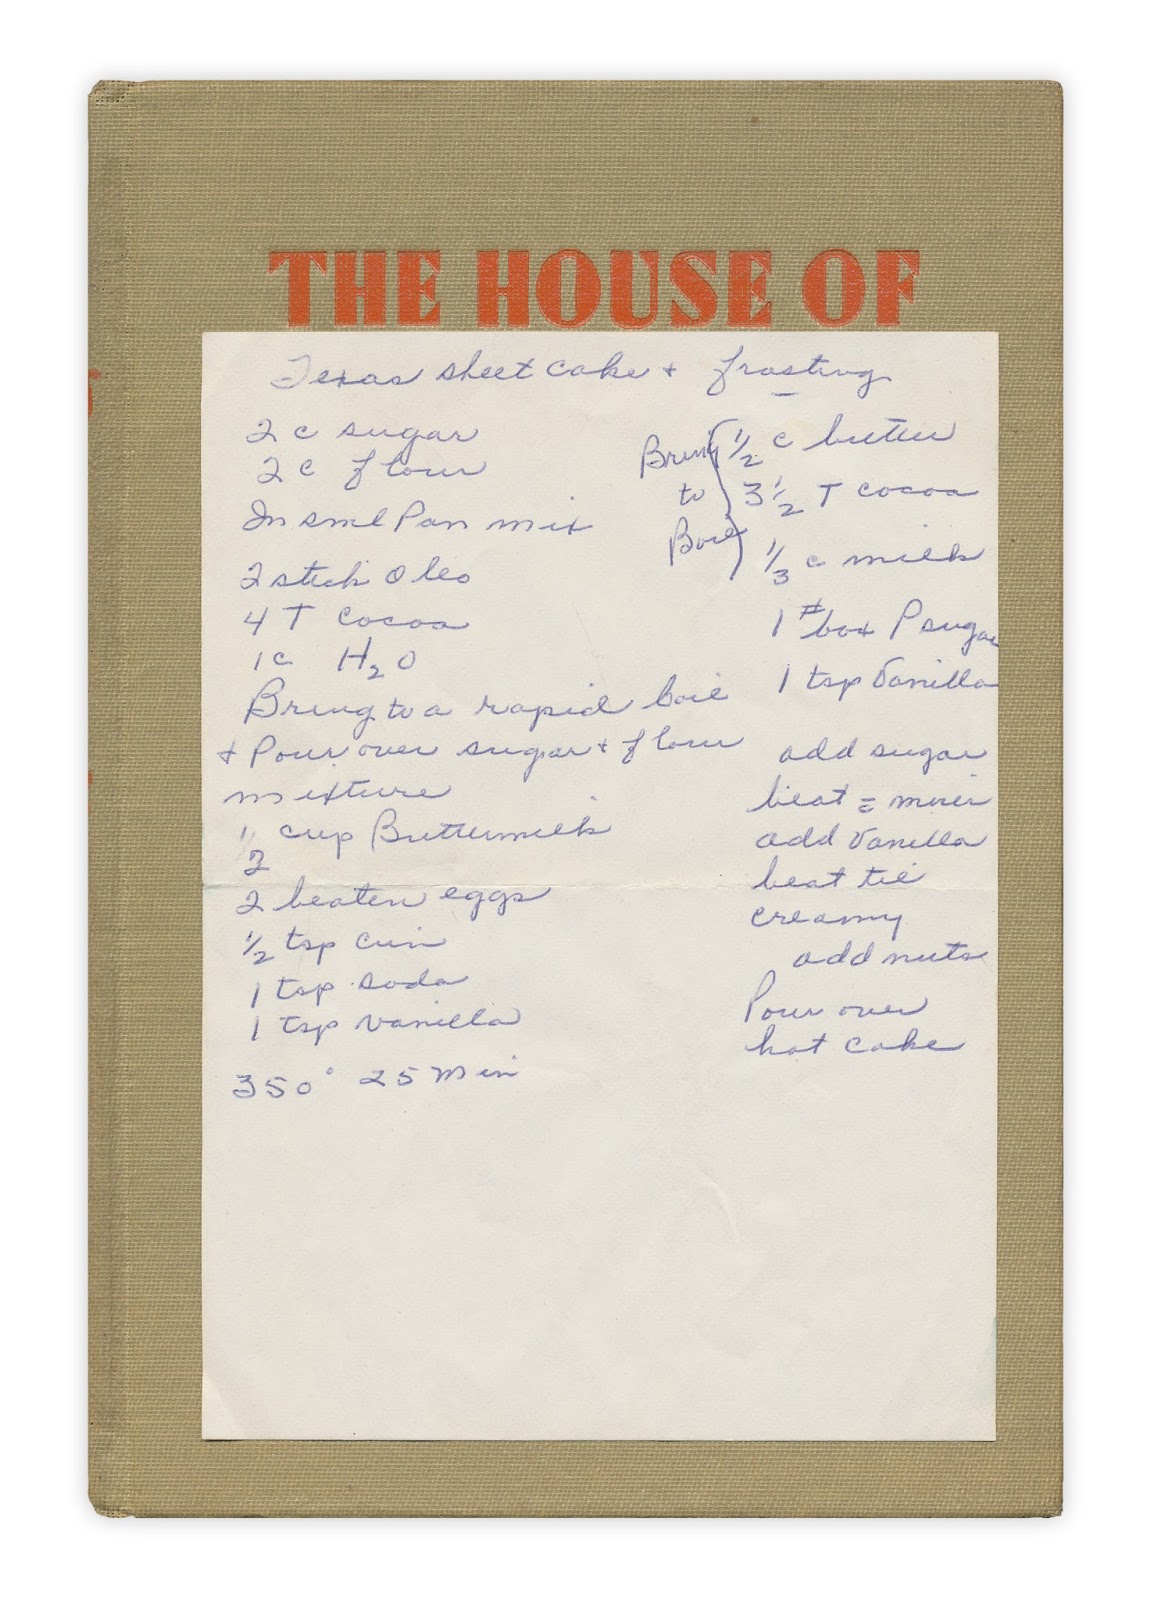 THE HOUSE OF
Texas sheet cake + frosting
2 c sugar
2 c flour
In sml Pan mix
2 stick Oleo
4 T cocoa
1 c H2O
Bring to a rapid boil
+ Pour over sugar + flour
mixture
1/2 cup Buttermilk
2 beaten eggs
1/2 tsp cin
1 tsp soda
1 tsp vanilla
350° 25 min
Bring
to
Boil
1/2 c butter
3 1/2 T cocoa
1/3 c milk
1 # box P sugar
1 tsp Vanilla
add sugar
beat = mixer
add Vanilla
beat til
creamy
add nuts
Pour over
hot cake